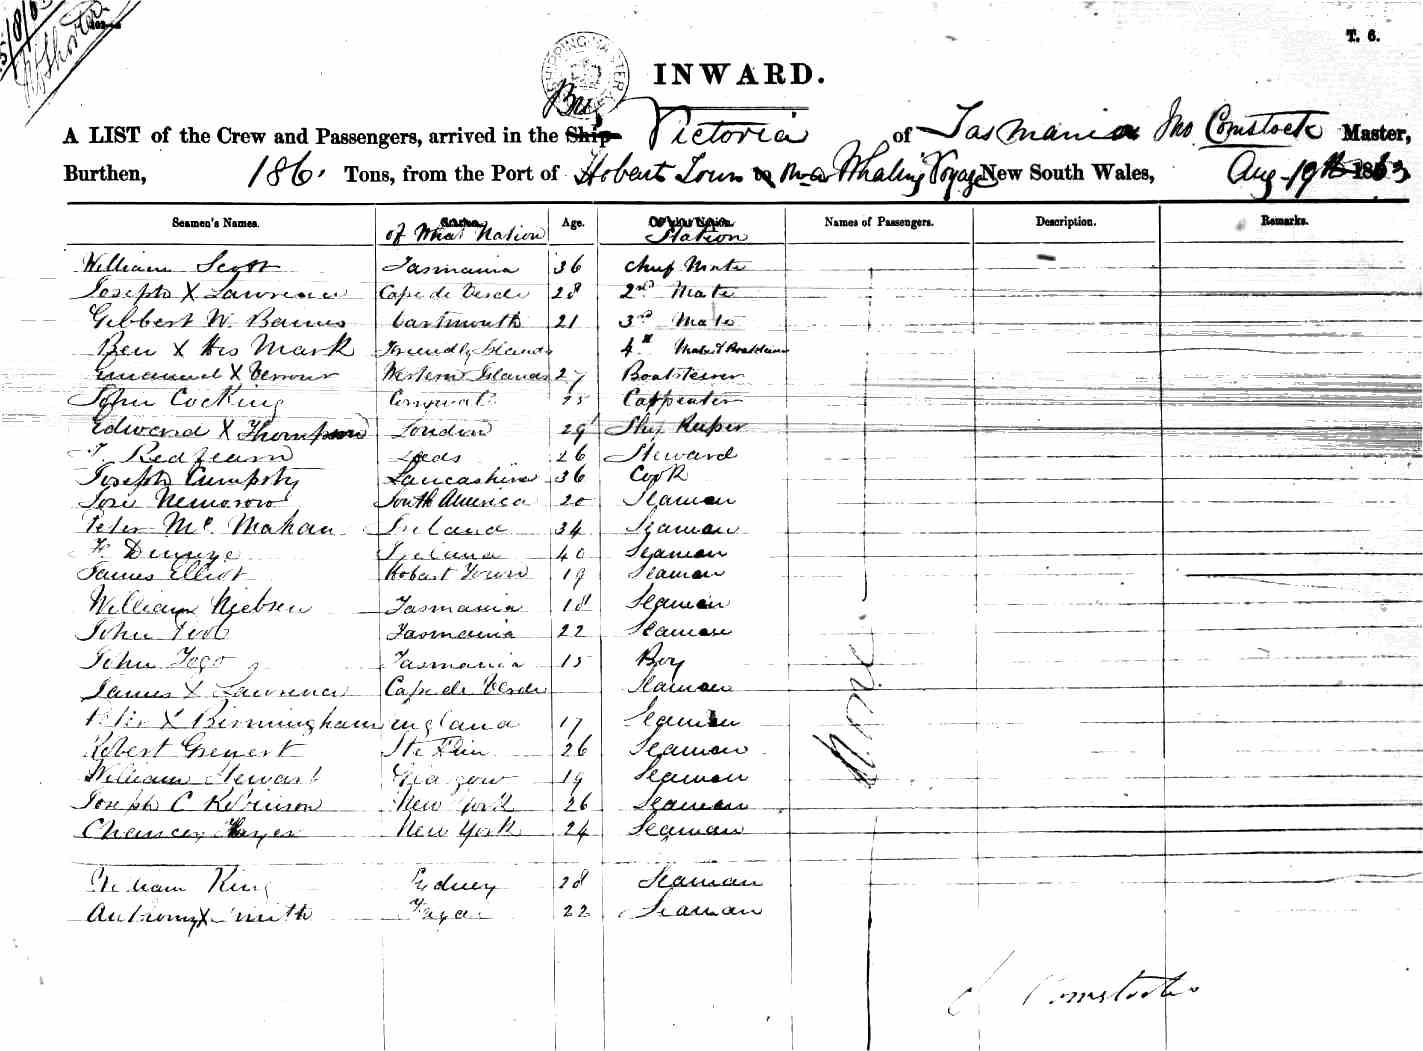 T. 6.
SHIPPING MASTER
INWARD.
A LIST of the Crew and Passengers, arrived in the Ship Victoria of Tasmania Jno Comstock Master,
Burthen, 186 Tons, from the Port of Hobart Town to Whaling Voyage New South Wales, Aug 19th 1863
Seamen's Names. of What Nation Age. Station Names of Passengers. Description. Remarks.
William Scott Tasmania 36 Chief Mate
Joseph X Lawrence Cape de Verde 28 2nd Mate
Gibbert W. Barnes Dartmouth 21 3rd Mate
Ben X His Mark Friendly Islands 4th Mate & Boatsteerer
Emanuel X Western Islands 27 Boatsteerer
John Cocking Cornwall 25 Carpenter
Edward X Thompson London 29 Ship Keeper
T. Redfearn Leeds 26 Steward
Joseph Cumpsty Lancashire 36 Cook
Jose South America 20 Seaman
Peter Mc Mahan Ireland 34 Seaman
Ireland 40 Seaman
James Elliot Hobart Town 19 Seaman
William Nielsen Tasmania 18 Seaman
John Tasmania 22 Seaman
John Togo Tasmania 15 Boy
James X Lawrence Cape de Verde Seaman
Peter X Birmingham England 17 Seaman
Robert 26 Seaman
William Stewart Glasgow 19 Seaman
Joseph C Robinson New York 26 Seaman
Chancey Hayes New York 24 Seaman
William King Sydney 28 Seaman
Anthony X Smith Fayal 22 Seaman
None
J Comstock